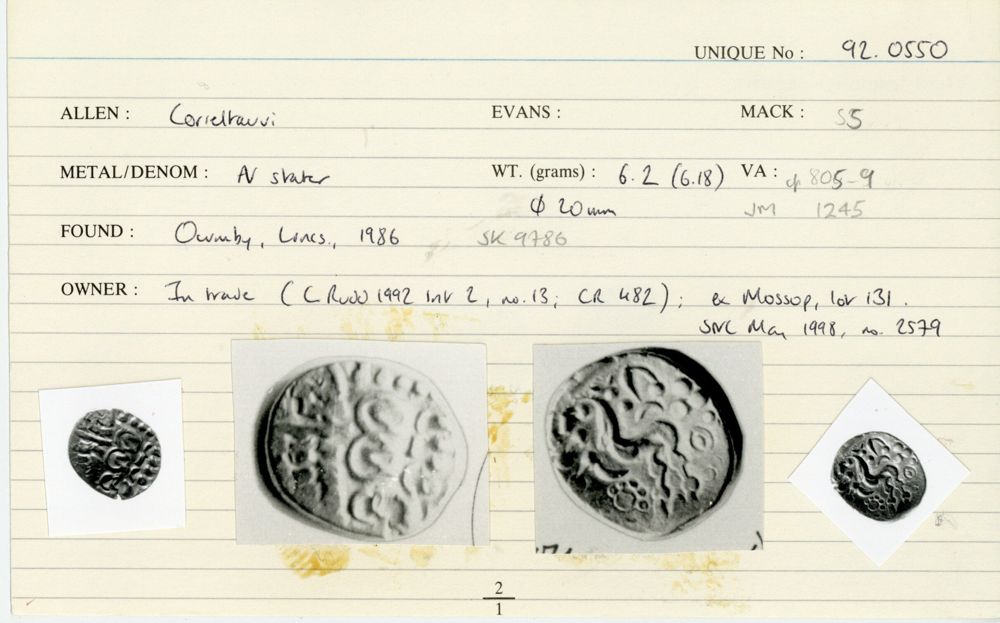 UNIQUE No : 92.0550
ALLEN : Corieltauvi EVANS : MACK : S5
METAL/DENOM : AV stater WT. (grams) : 6.2 (6.18) VA : cp 805-9
Φ 20mm JM 1245
FOUND : Owmby, Lincs., 1986 SK 9786
OWNER : In trade (C Rudd 1992 list 2, no. 13; CR 482); ex Mossop, lot 131.
SNC May 1998, no. 2579
2
1